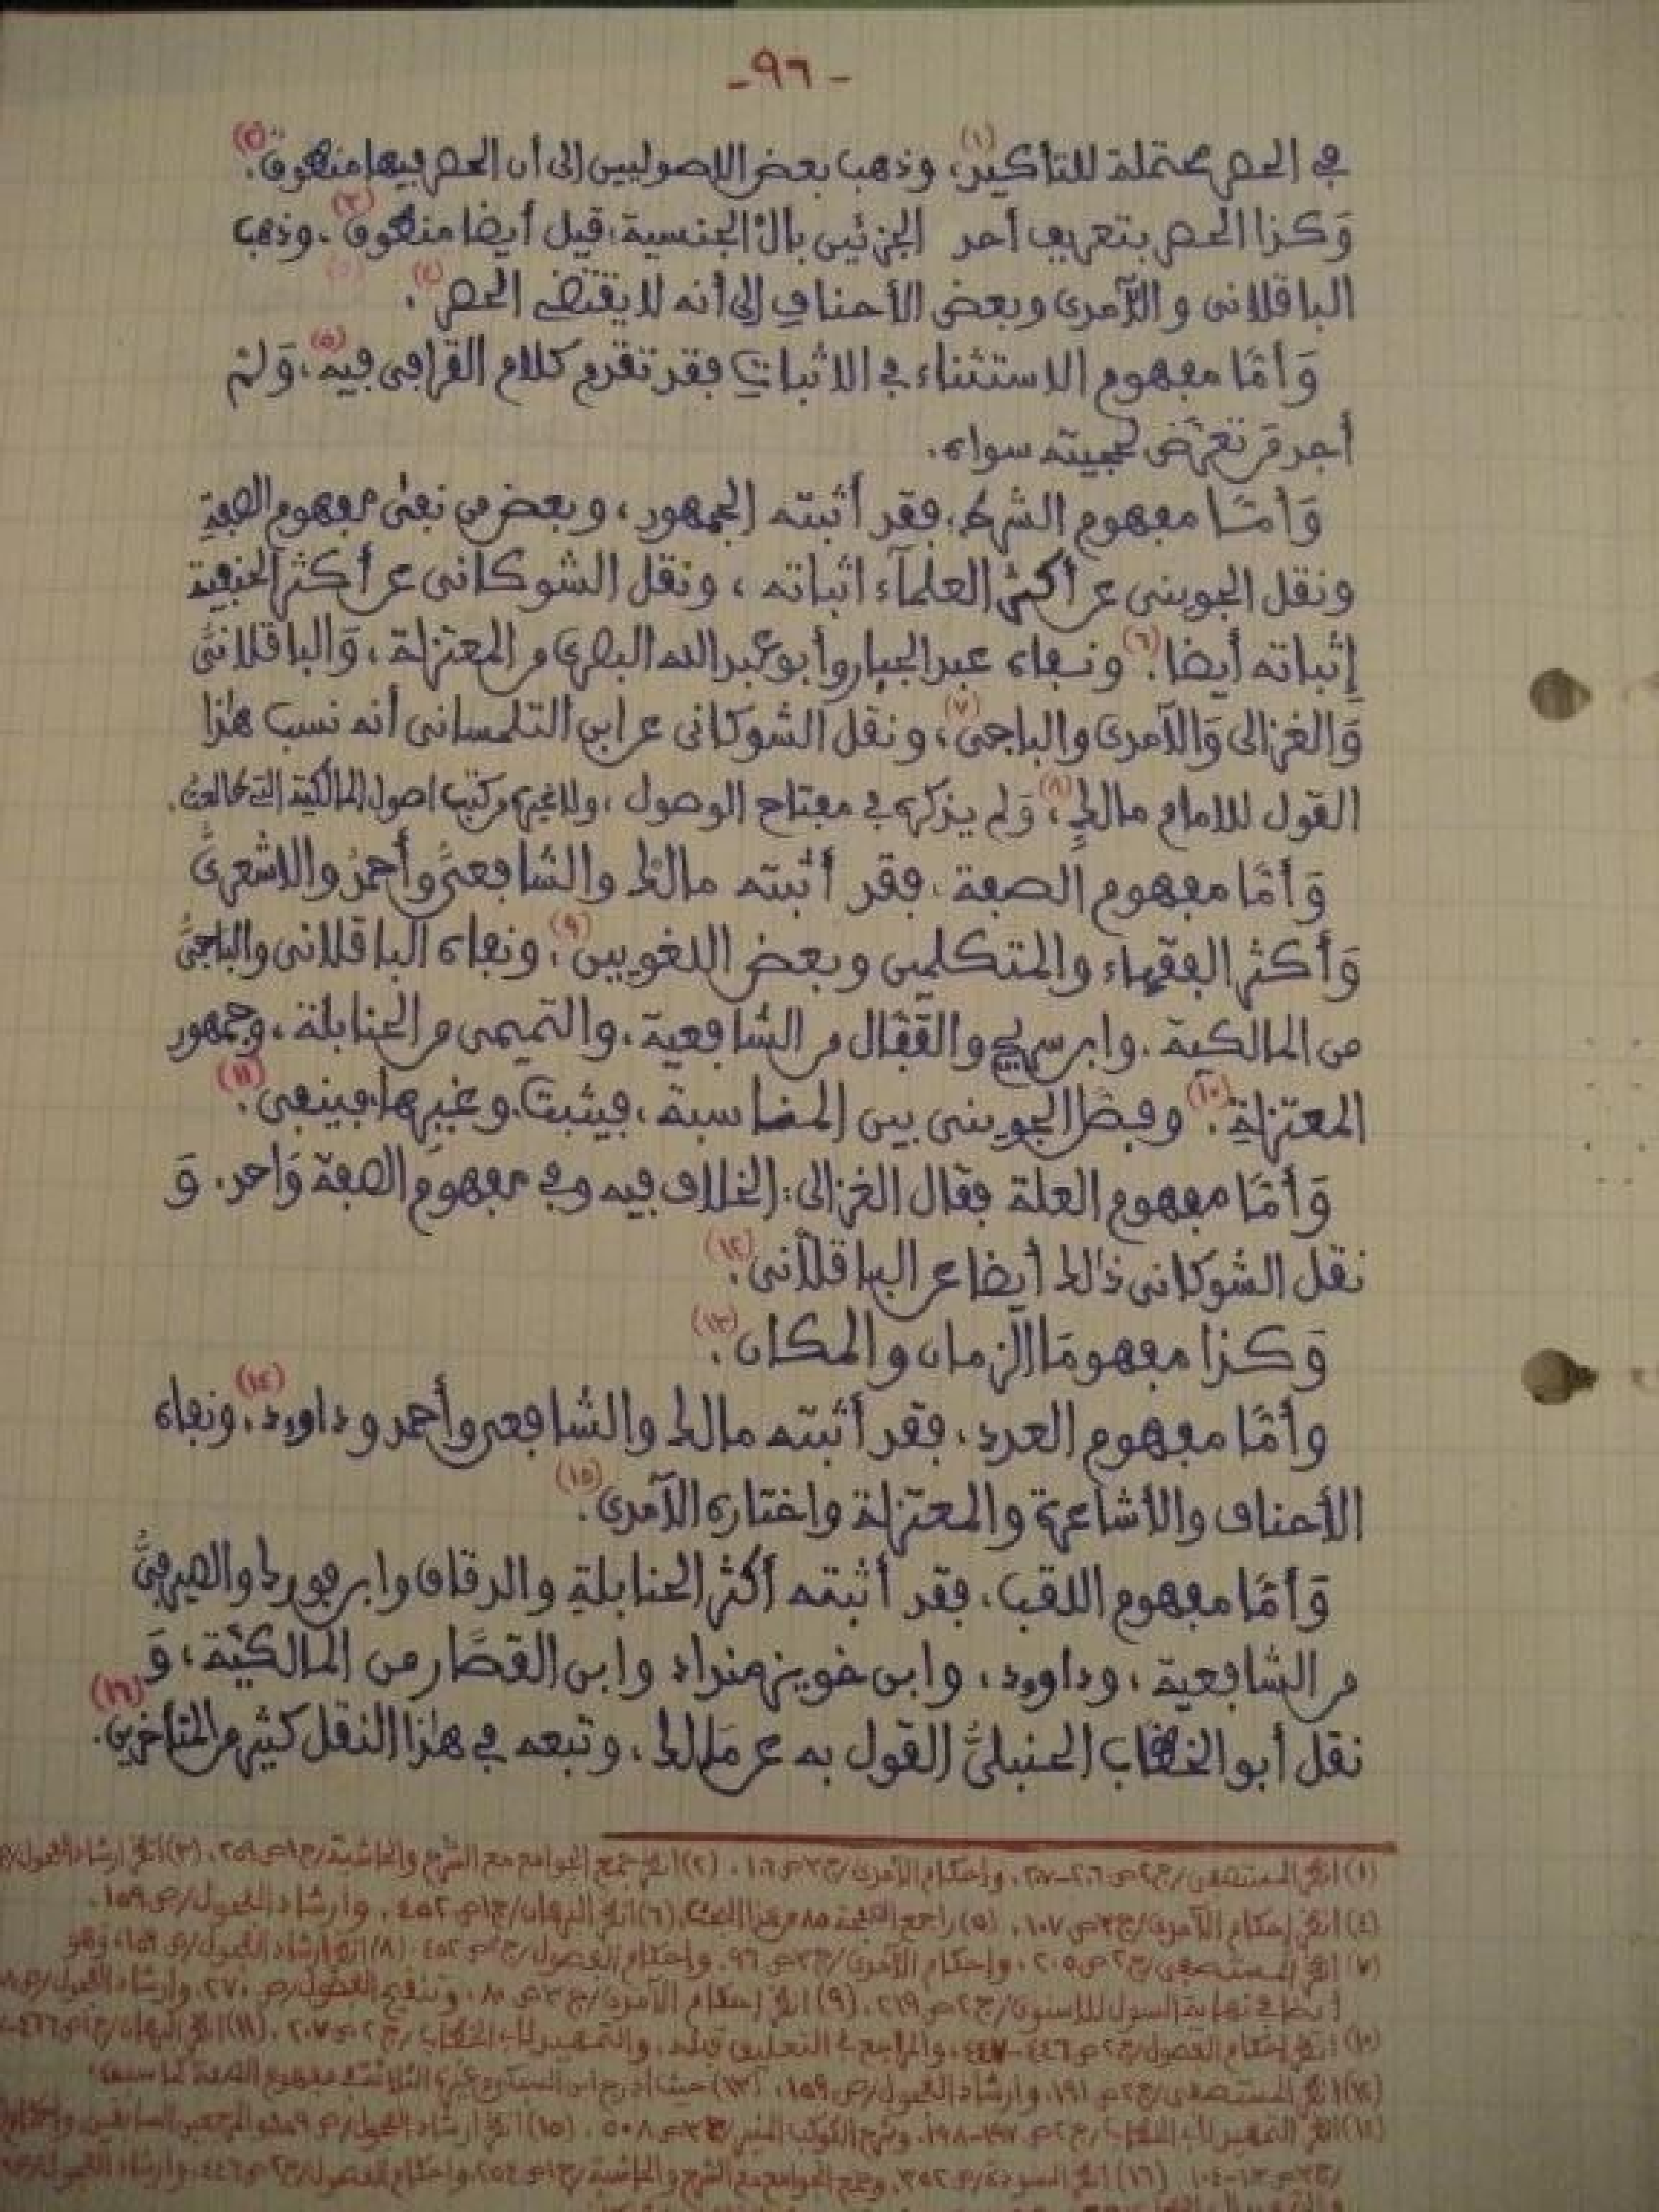 -٩٦-
في الحصر محتملة للتأكيد(١)، وذهب بعض الاصوليين إلى أن الحصر فيها منطوق(٢).
وَكذا الحصر بتعريف أحد الجزئين بال الجنسية، قيل أيضا منطوق(٣)، وذهب
الباقلانى والآمدى وبعض الأحناف إلى أنه لا يقتضى الحصر(٤).
وَأمَّا مفهوم الاستثناء في الاثبات فقد تقدم كلام القرافى فيه(٥)، وَلمْ
أجد من تعرّض لحجيته سواه.
وَأمَّا مفهوم الشرط، فقد أثبته الجمهور، وبعض من نفى مفهوم الصفة
ونقل الجوينى عن أكثر العلمآء اثباته، ونقل الشوكانى عن أكثر الحنفية
إثباته أيضا(٦). ونفاه عبد الجبار وأبو عبد الله البصرى من المعتزلة، وَالباقلانىّ
وَالغزالى وَالآمدى والباجى(٧)، ونقل الشوكانى عن ابن التلمسانى أنه نسب هٰذا
القول للامام مالكٍ(٨)، وَلم يذكره في مفتاح الوصول، ولا غيره من كتب اصول المالكية التى طالعتُ.
وَأمَّا مفهوم الصفة، فقد أثبته مالكٌ والشافعىُّ وأحمدُ والاشعرىُّ
وَأكثر الفقهاء والمتكلمين وبعض اللغويين(٩)، ونفاه الباقلانى والباجىُّ
من المالكية، وابن سريج والقفّال من الشافعية، والتميمى من الحنابلة، وجمهور
المعتزلة(١٠). وفصّل الجوينى بين المناسبة، فيثبت، وغيرها، فينفى(١١).
وَأمَّا مفهوم العلة فقال الغزالى: الخلاف فيه وفى مفهوم الصفة وَاحد. وَ
نقل الشوكانى ذٰلك أيضا عن الباقلّانى(١٢).
وَكذا مفهومَا الزمان والمكان(١٣).
وأمَّا مفهوم العدد، فقد أثبته مالك والشافعى وأحمد وداوود(١٤)، ونفاه
الأحناف والأشاعرة والمعتزلة واختاره الآمدى(١٥).
وَأمَّا مفهوم اللقب، فقد أثبته أكثر الحنابلة والدقاق وابن فورك والصيرفىُّ
من الشافعية، وداوود، وابن خويز منداد وابن القصَّار من المالكيّة، وَ
نقل أبو الخطاب الحنبلىُّ القول به عن مَالك، وتبعه في هٰذا النقل كثير من المتأخرين(١٦).
(١) انظر المستصفى/ج٢ ص٢٠٦-٢٠٧، وإحكام الآمدى/ج٣ ص١٠٦. (٢) انظر جمع الجوامع مع الشرح والحاشية/ج١ ص٢٥٩. (٣) انظر ارشاد الفحول/
(٤) انظر إحكام الآمدى/ج٣ ص١٠٧. (٥) راجع الصفحة ٨٥ من هذا البحث. (٦) انظر البرهان/ج١ ص٤٥٢، وارشاد الفحول/ص١٥٩.
(٧) انظر المستصفى/ج٢ ص٢٠٥، وإحكام الآمدى/ج٣ ص٩٦، وإحكام الفصول/ج٢ ص٤٥٢. (٨) انظر ارشاد الفحول/ص١٥٩، وهو
أيضا في نهاية السول للاسنوى/ج٢ ص٢١٩. (٩) انظر إحكام الآمدى/ج٣ ص٨٠، وتنقيح الفصول/ص٢٧٠، وارشاد الفحول/
(١٠) انظر إحكام الفصول/ج٢ ص٤٤٦-٤٤٧، والمراجع في التعليق قبله، والتمهيد لأبى الخطاب/ج٢ ص٢٠٧. (١١) انظر البرهان/ج١ ص٤٦٦-
(١٢) انظر المستصفى/ج٢ ص١٩١، وارشاد الفحول/ص١٥٩. (١٣) حيث أدرج ابن السبكى وغيره الثلاثة في مفهوم الصفة كما سبق.
(١٤) انظر التمهيد لأبى الخطاب/ج٢ ص١٩٧-١٩٨، وشرح الكوكب المنير/ج٣ ص٥٠٨. (١٥) انظر ارشاد الفحول/ والمرجعين السابقين، وإحكام
(١٦) انظر المسودة/ص٣٥٢، وجمع الجوامع مع الشرح والحاشية/ج١ ص٢٥٤، وإحكام الفصول/ج٢ ص٤٤٦، وارشاد الفحول/